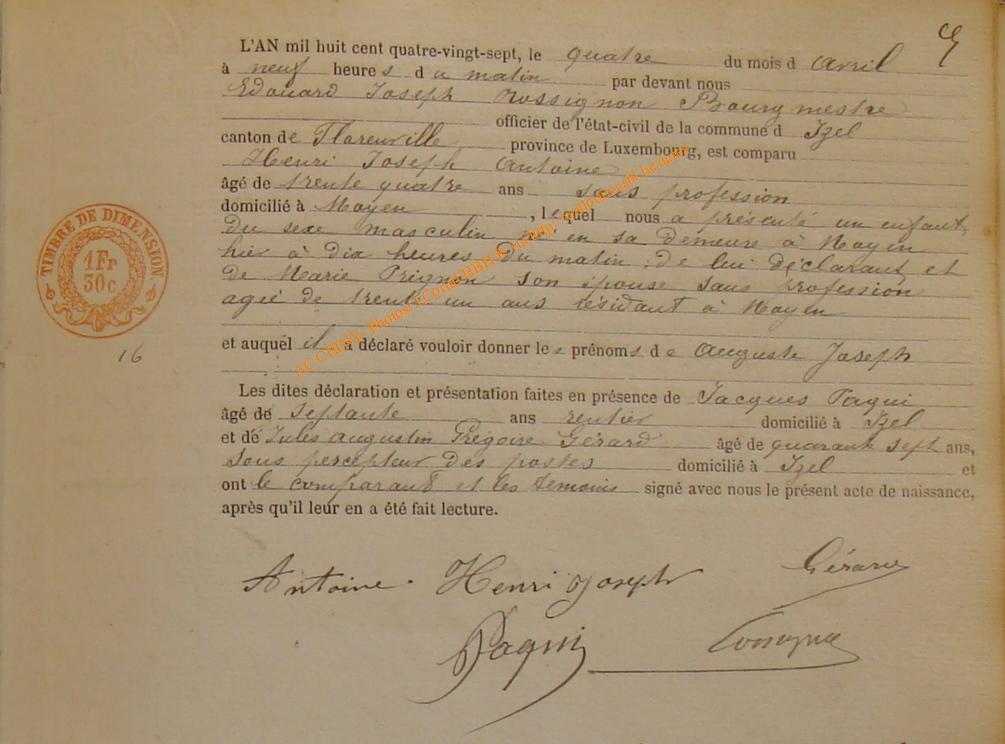 L'AN mil huit cent quatre-vingt-sept, le quatre du mois d avril
à neuf heures du matin par devant nous
Edouard Joseph Rossignon Bourgmestre
officier de l'état-civil de la commune d Izel
canton de Florenville province de Luxembourg, est comparu
Henri Joseph Antoine
âgé de trente quatre ans sans profession
domicilié à Moyen, lequel nous a présenté un enfant,
du sexe masculin né en sa demeure à Moyen
hier à dix heures du matin, de lui déclarant et
de Marie Prignon son épouse sans profession
agée de trente un ans résidant à Moyen
et auquel il a déclaré vouloir donner les prénoms de Auguste Joseph
Les dites déclaration et présentation faites en présence de Jacques Paqui
âgé de septante ans rentier domicilié à Izel
et de Jules Augustin Grégoire Gérard âgé de quarante sept ans,
sous percepteur des postes domicilié à Izel et
ont le comparant et les témoins signé avec nous le présent acte de naissance,
après qu'il leur en a été fait lecture.
TIMBRE DE DIMENSION
1 Fr
30c
16
Antoine. Henri Joseph Gérard
Paqui